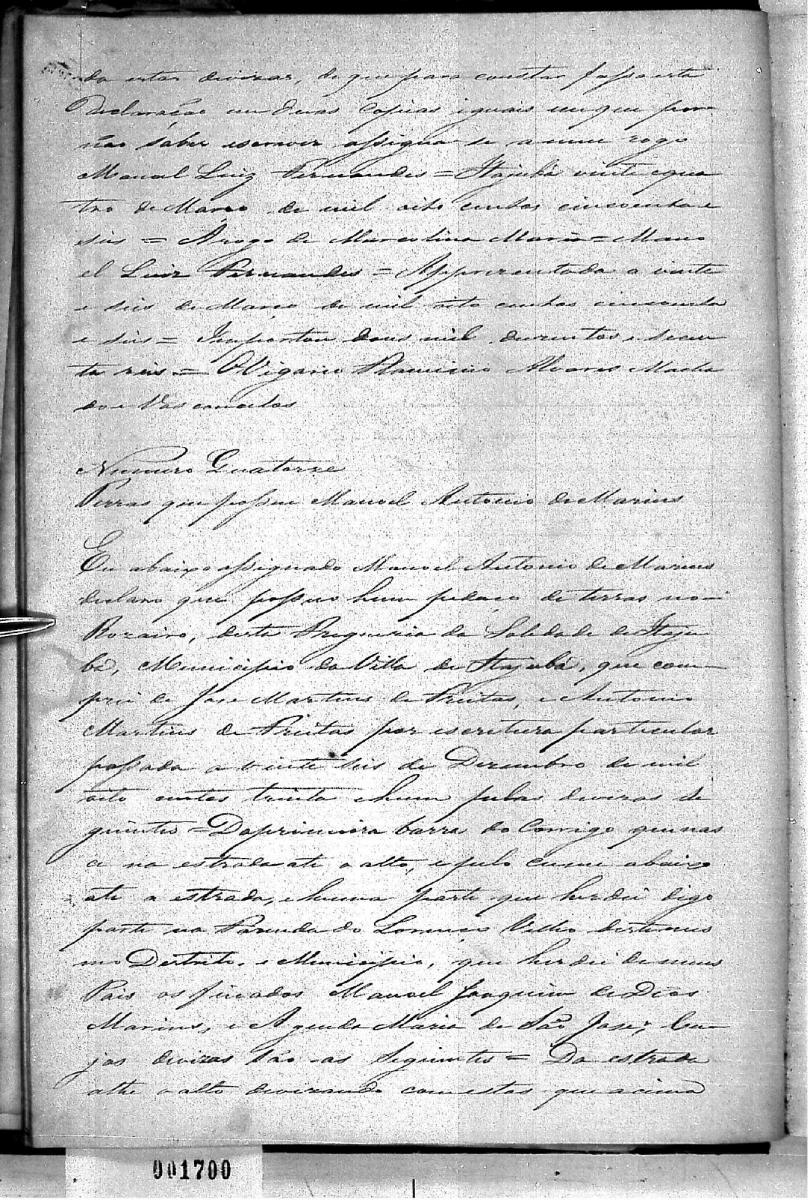 do estas divizas, de que para constar fasso esta
Declaração em duas Copias iguais em que por
não saber escrever assigna-se a meu rogo
Manoel Luiz Fernandes = Itajubá vinte e qua
tro de Março de mil oito centos cincoenta e
seis = A rogo de Marcolina Maria = Mano
el Luiz Fernandes = Appresentada a vinte
e seis de Março de mil oito centos cincoenta
e seis = Importou dous mil duzentos e secen
ta reis = O Vigario Alvares Macha
do e Vasconcelos
Numero Quatorze
Terras que possue Manoel Antonio de Marins
Eu abaixo assignado Manoel Antonio de Marins
declaro que possuo hum pedaço de terras no
Rozario, desta Freguezia da Soledade de Itaju
bá, Municipio da Villa de Itajubá, que com
prei de Jose Martins de Freitas, e Antonio
Martins de Freitas por escritura particular
passada a vinte seis de Dezembro de mil
oito centos trinta e hum pelas divizas se
guintes = Da primeira barra do Corrigo que nas
ce na estrada ate o alto, e pelo cume abaixo
ate a estrada, e huma parte que herdei digo
parte na Fazenda do Lourenço Velho deste mes
mo Destrito, e Municipio, que herdei de meus
Pais os finados Manoel Joaquim de Deos
Marins, e Agueda Maria de São Jose; Cu
jas divizas são as Seguintes = Da estrada
athe o alto devizando com estas que acima
001700